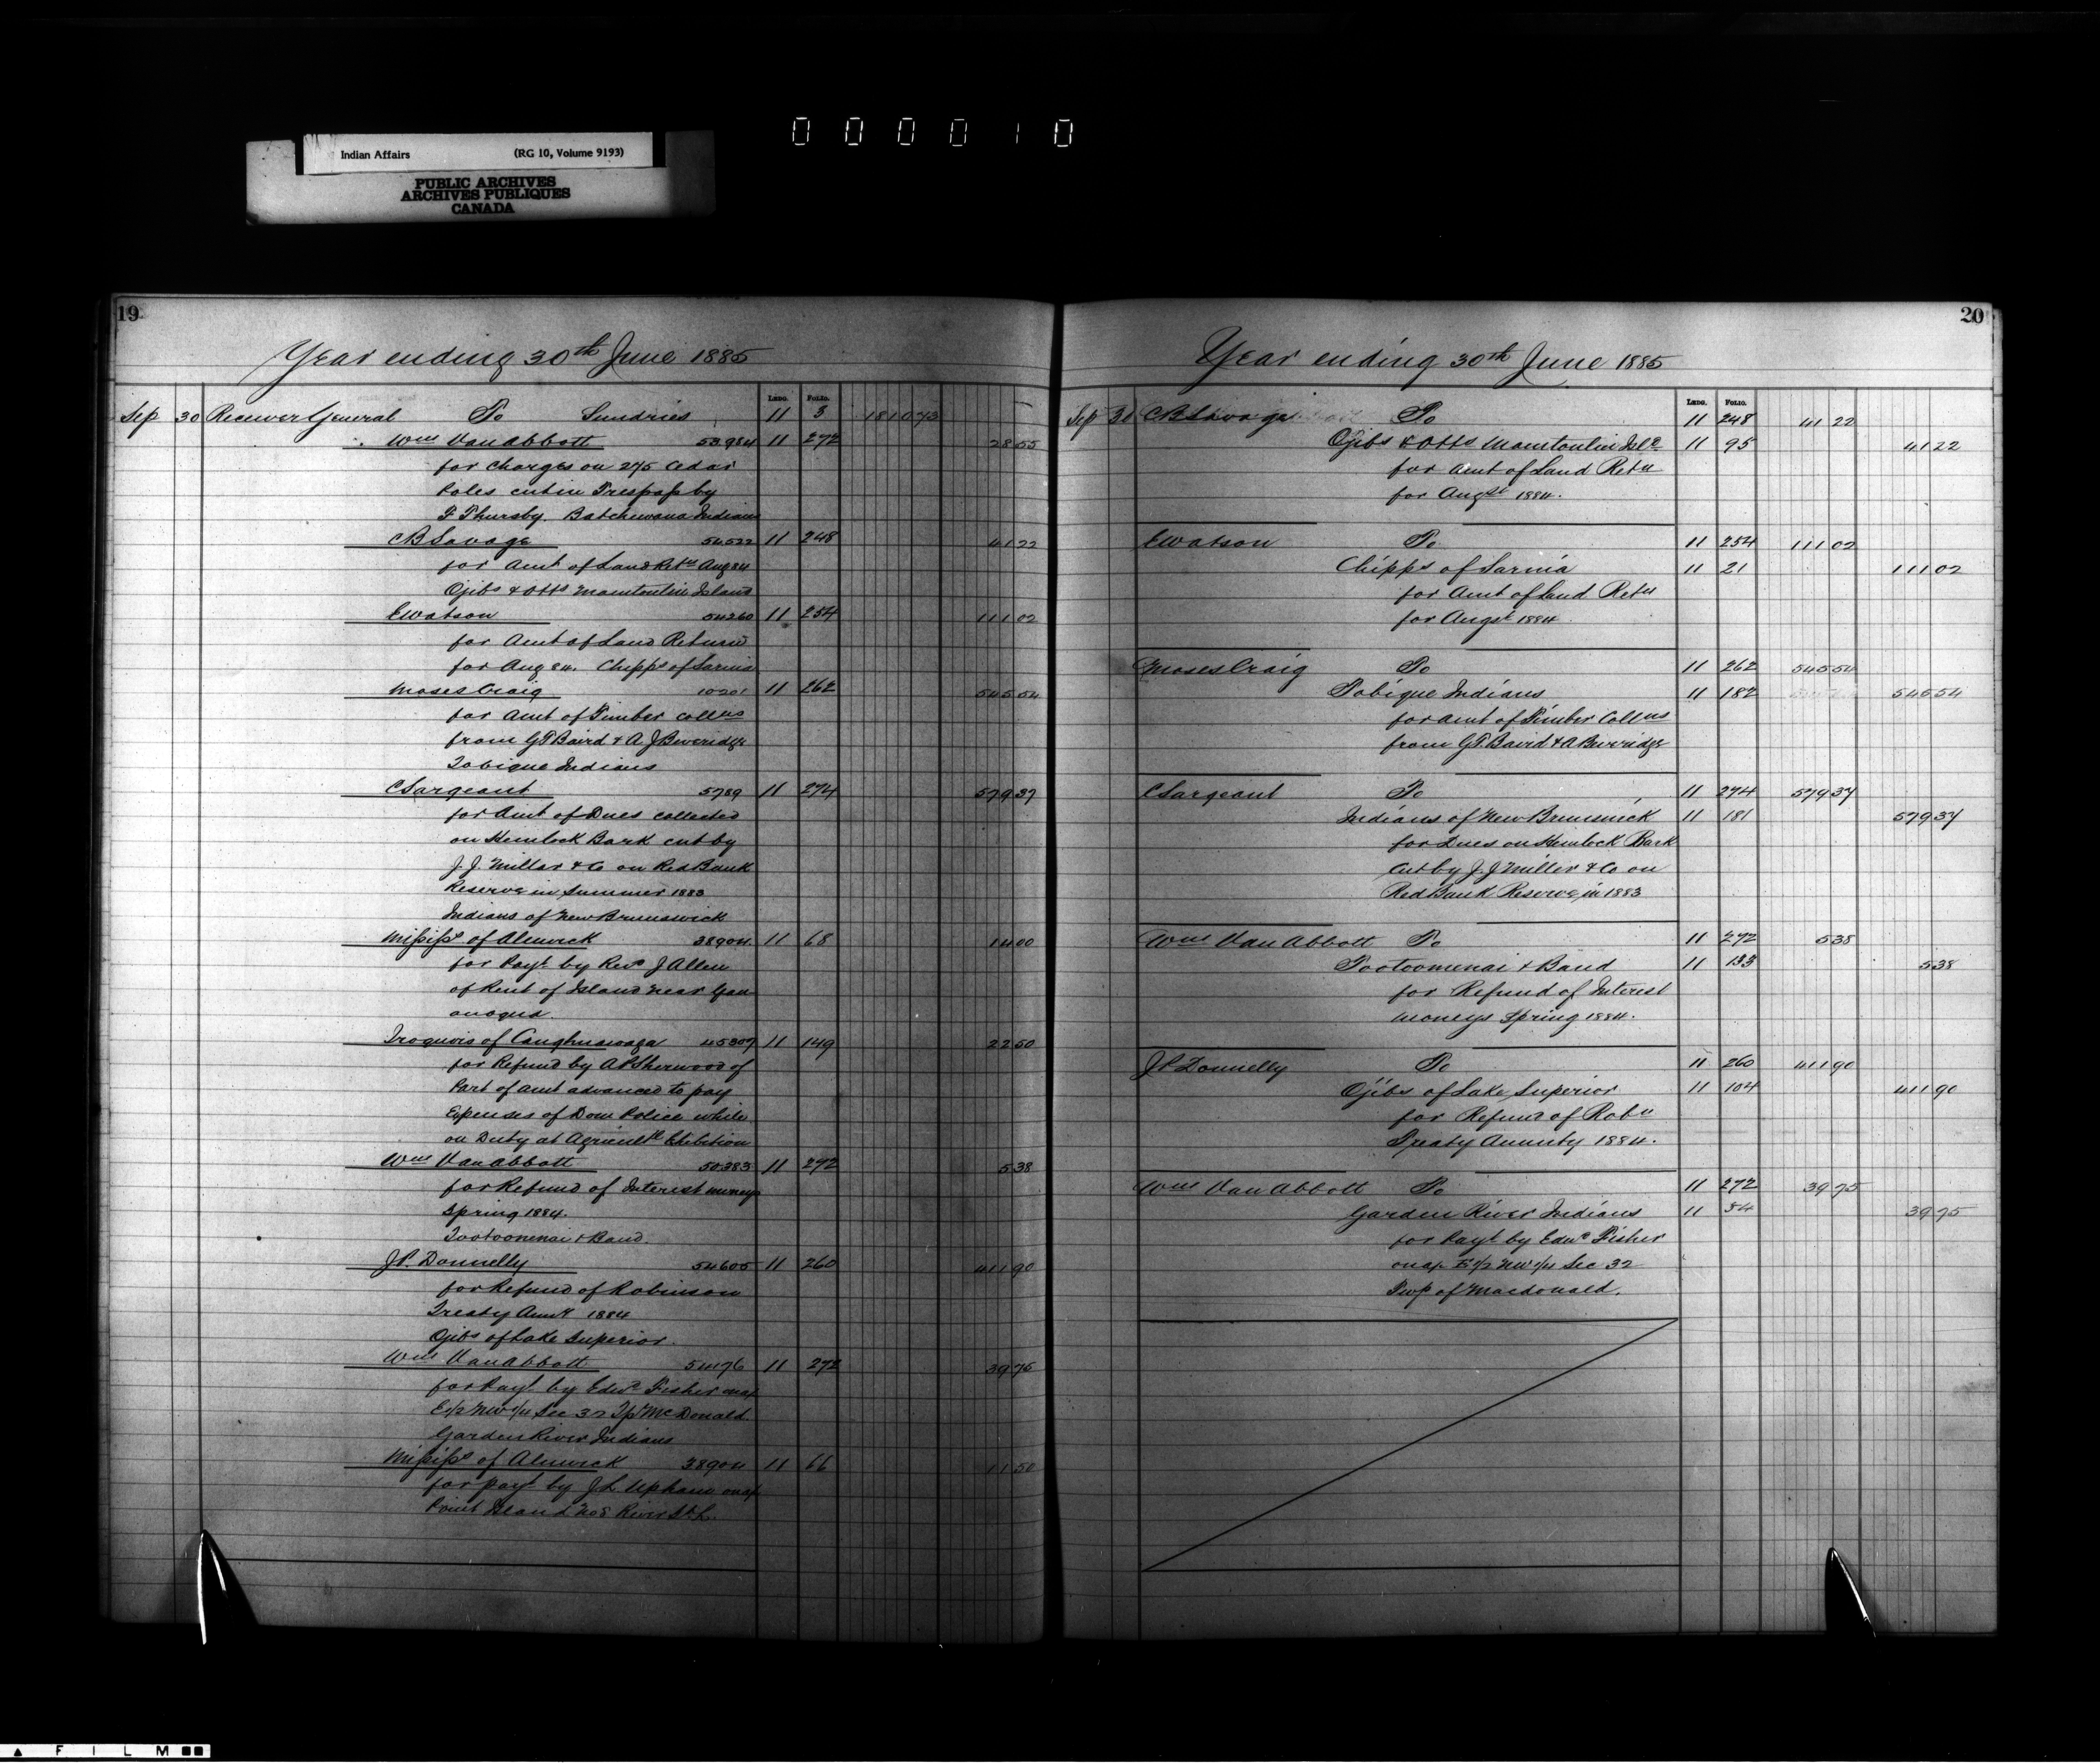 000010
Indian Affairs (RG 10, Volume 9193)
PUBLIC ARCHIVES
ARCHIVES PUBLIQUES
CANADA
19
Year ending 30th June 1885
Ledg. Folio.
Sep 30 Receiver General To Sundries 11 3 1810 73
Wm Van Abbott 53984 11 272 28 55
for Charges on 275 Cedar
Poles cut in Trespass by
F Thursby. Batchewana Indians
C B Savage 54522 11 248 41 22
for Amt of Land Retn Aug 84
Ojibs & Otts Manitoulin Island
E Watson 54260 11 254 111 02
for Amt of Land Return
for Aug 84. Chipps of Sarnia
Moses Craig 10201 11 262 545 54
for Amt of Timber collns
from G T Baird & A J Beveridge
Tobique Indians
C Sargeant 5789 11 274 579 37
for Amt of Dues collected
on Hemlock Bark cut by
J. J. Miller & Co on Red Bank
Reserve in Summer 1883
Indians of New Brunswick
Missisps of Alnwick 38904 11 68 14 00
for Payt by Revd J Allen
of Rent of Island near Gan
anoqua
Iroquois of Caughnawaga 45307 11 149 22 50
for Refund by A P Sherwood of
Part of amt advanced to pay
Expenses of Dom Police while
on Duty at Agricultl Exhibition
Wm Van Abbott 50383 11 272 5 38
for Refund of Interest moneys
Spring 1884.
Tootoomenai & Band.
J P. Donnelly 54605 11 260 411 90
for Refund of Robinson
Treaty Annty 1884
Ojibs of Lake Superior.
Wm Van Abbott 54176 11 272 39 75
for Payt by Edwd Fisher on a/c
E1/2 NW1/4 Sec 32 Tp McDonald
Garden River Indians
Missisps of Alnwick 38904 11 66 11 50
for payt by J L Upham on a/c
Point Island No 8 River St. L.
20
Year ending 30th June 1885
Ledg. Folio.
Sep 30 C B Savage To 11 248 41 22
Ojibs & Otts Manitoulin Isld 11 95 41 22
for Amt of Land Retn
for Augst 1884.
E Watson To 11 254 111 02
Chipps of Sarnia 11 21 111 02
for Amt of Land Retn
for Augst 1884
Moses Craig To 11 262 545 54
Tobique Indians 11 182 545 54
for Amt of Timber Collns
from G T. Baird & A Beveridge
C Sargeant To 11 274 579 37
Indians of New Brunswick 11 181 579 37
for Dues on Hemlock Bark
cut by J. J Miller & Co on
Red Bank Reserve in 1883
Wm Van Abbott To 11 272 5 38
Tootoomenai & Band 11 133 5 38
for Refund of Interest
moneys Spring 1884.
J P Donnelly To 11 260 411 90
Ojibs of Lake Superior 11 104 411 90
for Refund of Robn
Treaty Annuity 1884.
Wm Van Abbott To 11 272 39 75
Garden River Indians 11 54 39 75
for Payt by Edwd Fisher
on a/c E1/2 NW1/4 Sec 32
Twp of Macdonald.
FILM